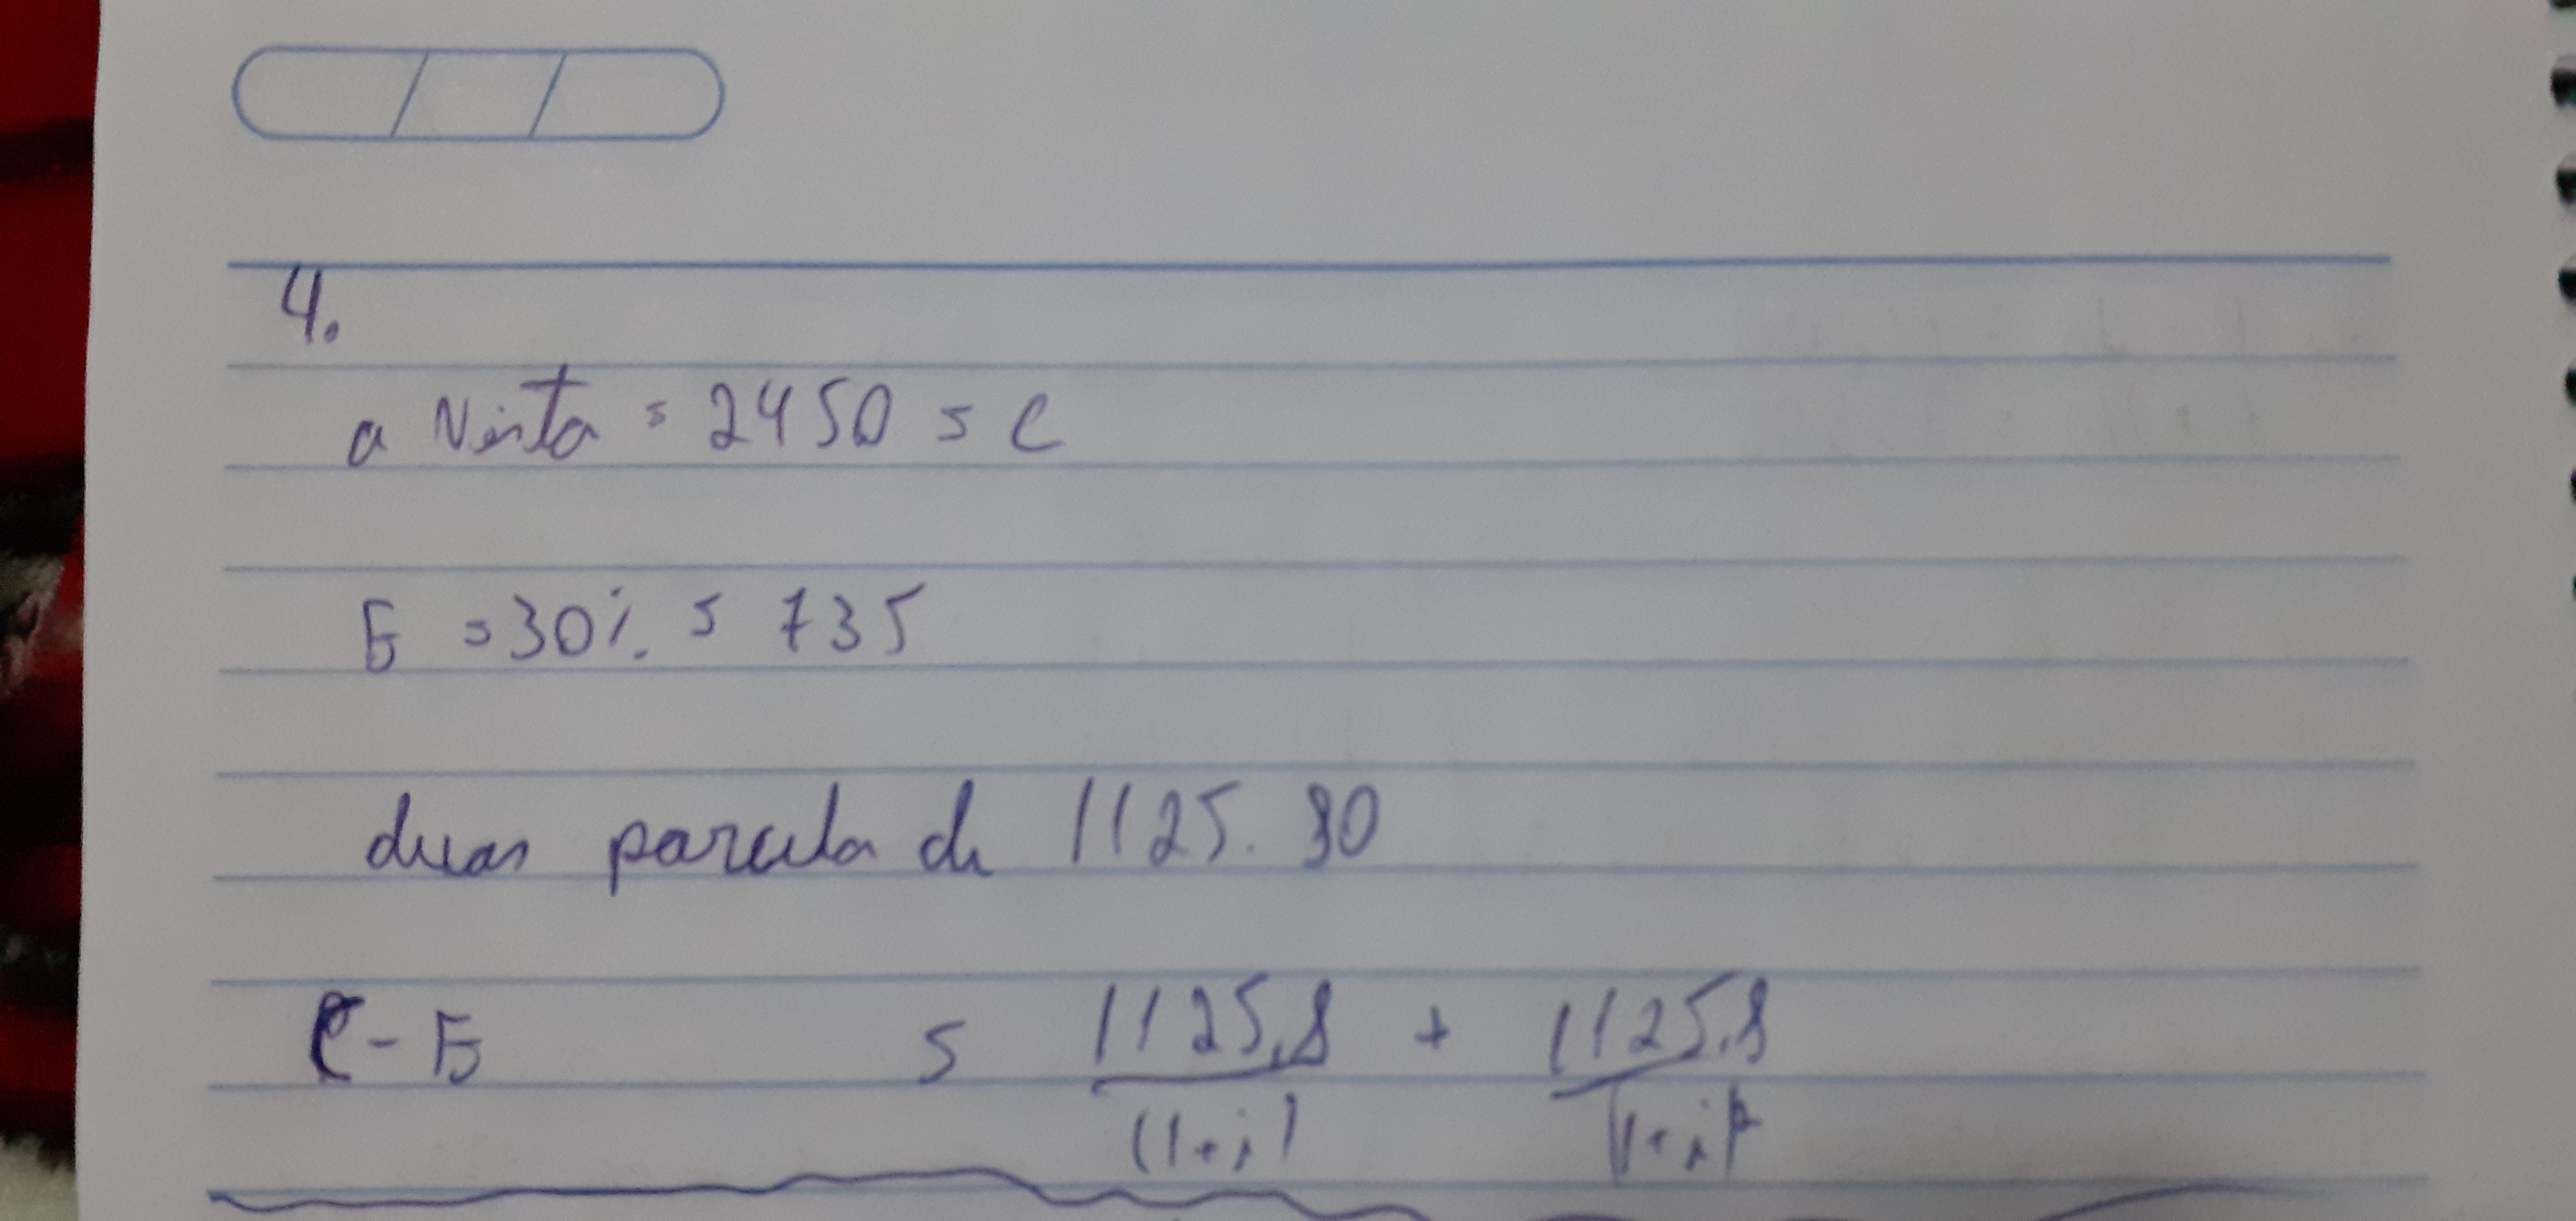 4.
a Vista = 2450 = C
E = 30% = 735
duas parcela de 1125.80
C - E = 1125,8 / (1+i) + 1125,8 / (1+i)²